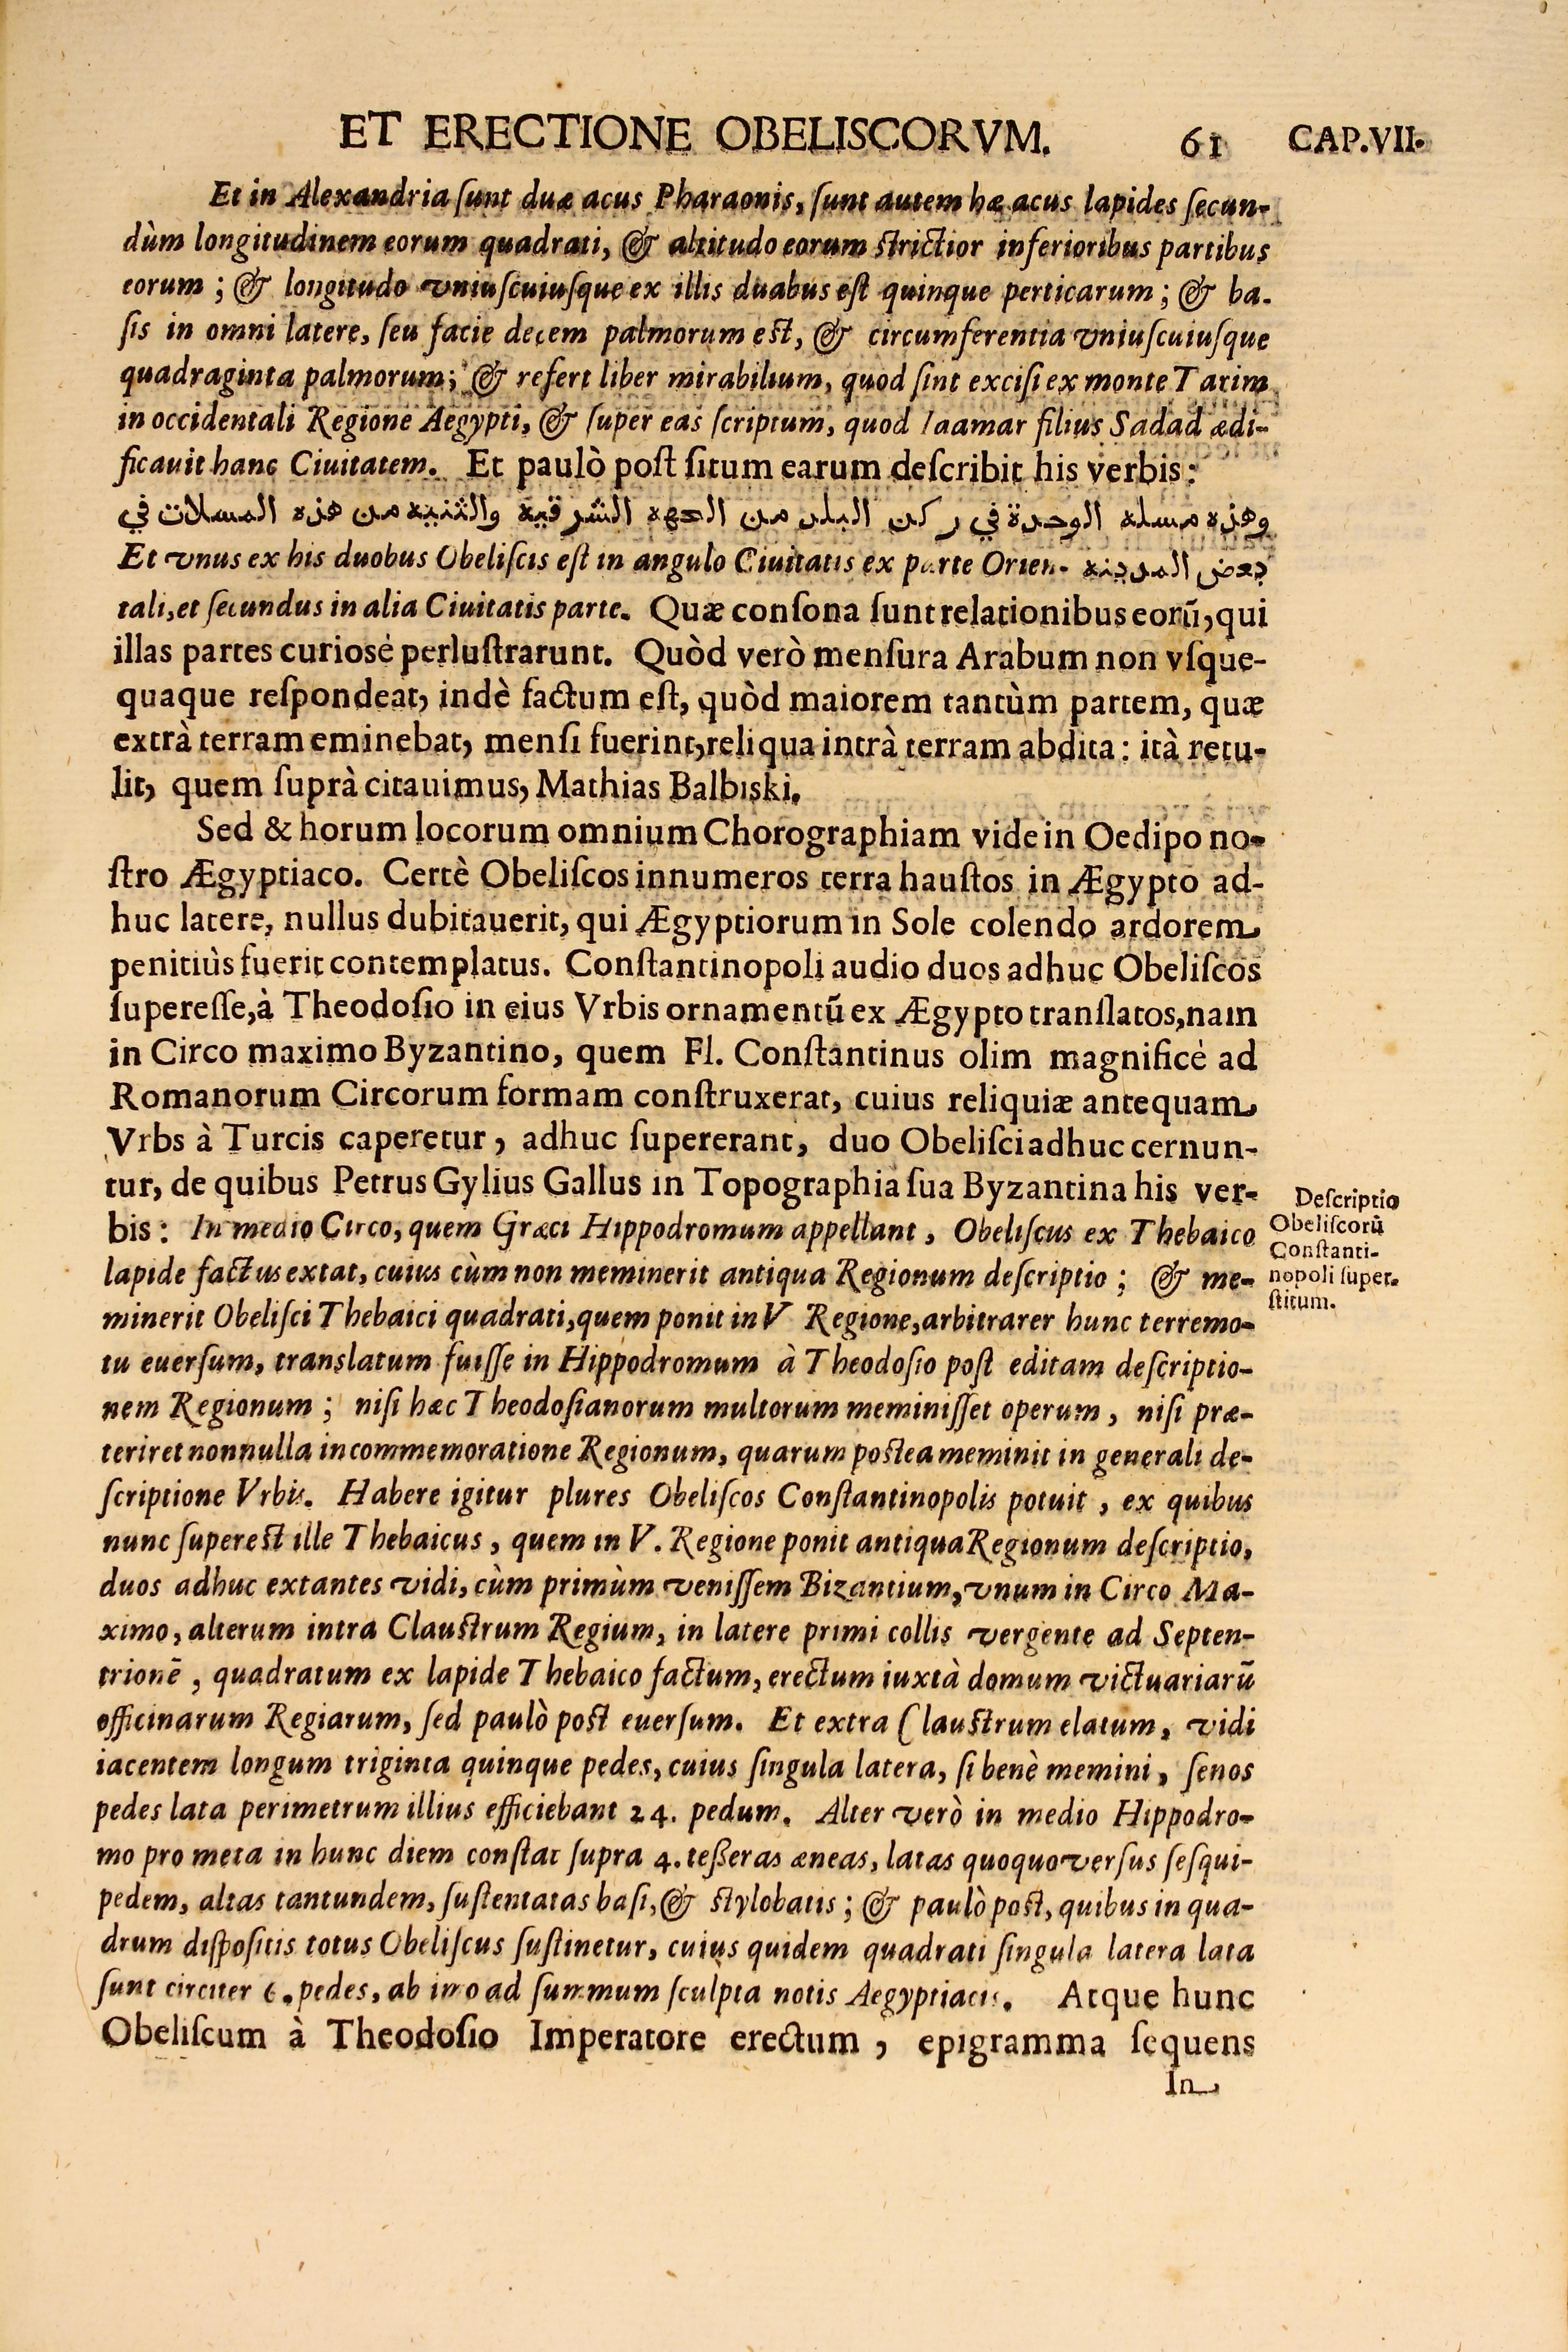 ET ERECTIONE OBELISCORVM. 61 CAP.VII.
Et in Alexandria ſunt duæ acus Pharaonis, ſunt autem hæ acus lapides ſecun-
dùm longitudinem eorum quadrati, & altitudo eorum ſtrictior inferioribus partibus
eorum ; & longitudo vniuſcuiuſque ex illis duabus eſt quinque perticarum ; & ba-
ſis in omni latere, ſeu facie decem palmorum eſt, & circumferentia vniuſcuiuſque
quadraginta palmorum; & refert liber mirabilium, quod ſint exciſi ex monte Tarim
in occidentali Regione Aegypti, & ſuper eas ſcriptum, quod Iaamar filius Sadad ædi-
ficauit hanc Ciuitatem. Et paulò poſt ſitum earum deſcribit his verbis:
وهذه مسله الوحدة في ركن البلد من الجهه الشرقية والثنيه من هذه المسلات في
بعض المدينه Et vnus ex his duobus Obeliſcis eſt in angulo Ciuitatis ex parte Orien-
tali, et ſecundus in alia Ciuitatis parte. Quæ conſona ſunt relationibus eorū, qui
illas partes curiosè perluſtrarunt. Quòd verò menſura Arabum non vſque-
quaque reſpondeat, indè factum eſt, quòd maiorem tantùm partem, quæ
extrà terram eminebat, menſi fuerint, reliqua intrà terram abdita: ità retu-
lit, quem ſuprà citauimus, Mathias Balbiski.
Sed & horum locorum omnium Chorographiam vide in Oedipo no-
ſtro Ægyptiaco. Certè Obeliſcos innumeros terra hauſtos in Ægypto ad-
huc latere, nullus dubitauerit, qui Ægyptiorum in Sole colendo ardorem
penitiùs fuerit contemplatus. Conſtantinopoli audio duos adhuc Obeliſcos
ſupereſſe, à Theodoſio in eius Vrbis ornamentū ex Ægypto translatos, nam
in Circo maximo Byzantino, quem Fl. Conſtantinus olim magnificè ad
Romanorum Circorum formam conſtruxerat, cuius reliquiæ antequam
Vrbs à Turcis caperetur, adhuc ſupererant, duo Obeliſci adhuc cernun-
tur, de quibus Petrus Gylius Gallus in Topographia ſua Byzantina his ver-
bis: In medio Circo, quem Græci Hippodromum appellant, Obeliſcus ex Thebaico
lapide factus extat, cuius cùm non meminerit antiqua Regionum deſcriptio ; & me-
minerit Obeliſci Thebaici quadrati, quem ponit in V Regione, arbitrarer hunc terremo-
tu euerſum, translatum fuiſſe in Hippodromum à Theodoſio poſt editam deſcriptio-
nem Regionum ; niſi hæc Theodoſianorum multorum meminiſſet operum, niſi præ-
teriret nonnulla in commemoratione Regionum, quarum poſtea meminit in generali de-
ſcriptione Vrbis. Habere igitur plures Obeliſcos Conſtantinopolis potuit, ex quibus
nunc ſupereſt ille Thebaicus, quem in V. Regione ponit antiqua Regionum deſcriptio,
duos adhuc extantes vidi, cùm primùm veniſſem Bizantium, vnum in Circo Ma-
ximo, alterum intra Clauſtrum Regium, in latere primi collis vergente ad Septen-
trionē, quadratum ex lapide Thebaico factum, erectum iuxtà domum victuariarū
officinarum Regiarum, ſed paulò poſt euerſum. Et extra Clauſtrum elatum, vidi
iacentem longum triginta quinque pedes, cuius ſingula latera, ſi benè memini, ſenos
pedes lata perimetrum illius efficiebant 24. pedum. Alter verò in medio Hippodro-
mo pro meta in hunc diem conſtat ſupra 4. teſſeras æneas, latas quoquoverſus ſeſqui-
pedem, altas tantundem, ſuſtentatas baſi, & ſtylobatis ; & paulò poſt, quibus in qua-
drum diſpoſitis totus Obeliſcus ſuſtinetur, cuius quidem quadrati ſingula latera lata
ſunt circiter 6. pedes, ab imo ad ſummum ſculpta notis Aegyptiacis. Atque hunc
Obeliſcum à Theodoſio Imperatore erectum, epigramma ſequens
In
Deſcriptio
Obeliſcorū
Conſtanti-
nopoli ſuper-
ſtitum.